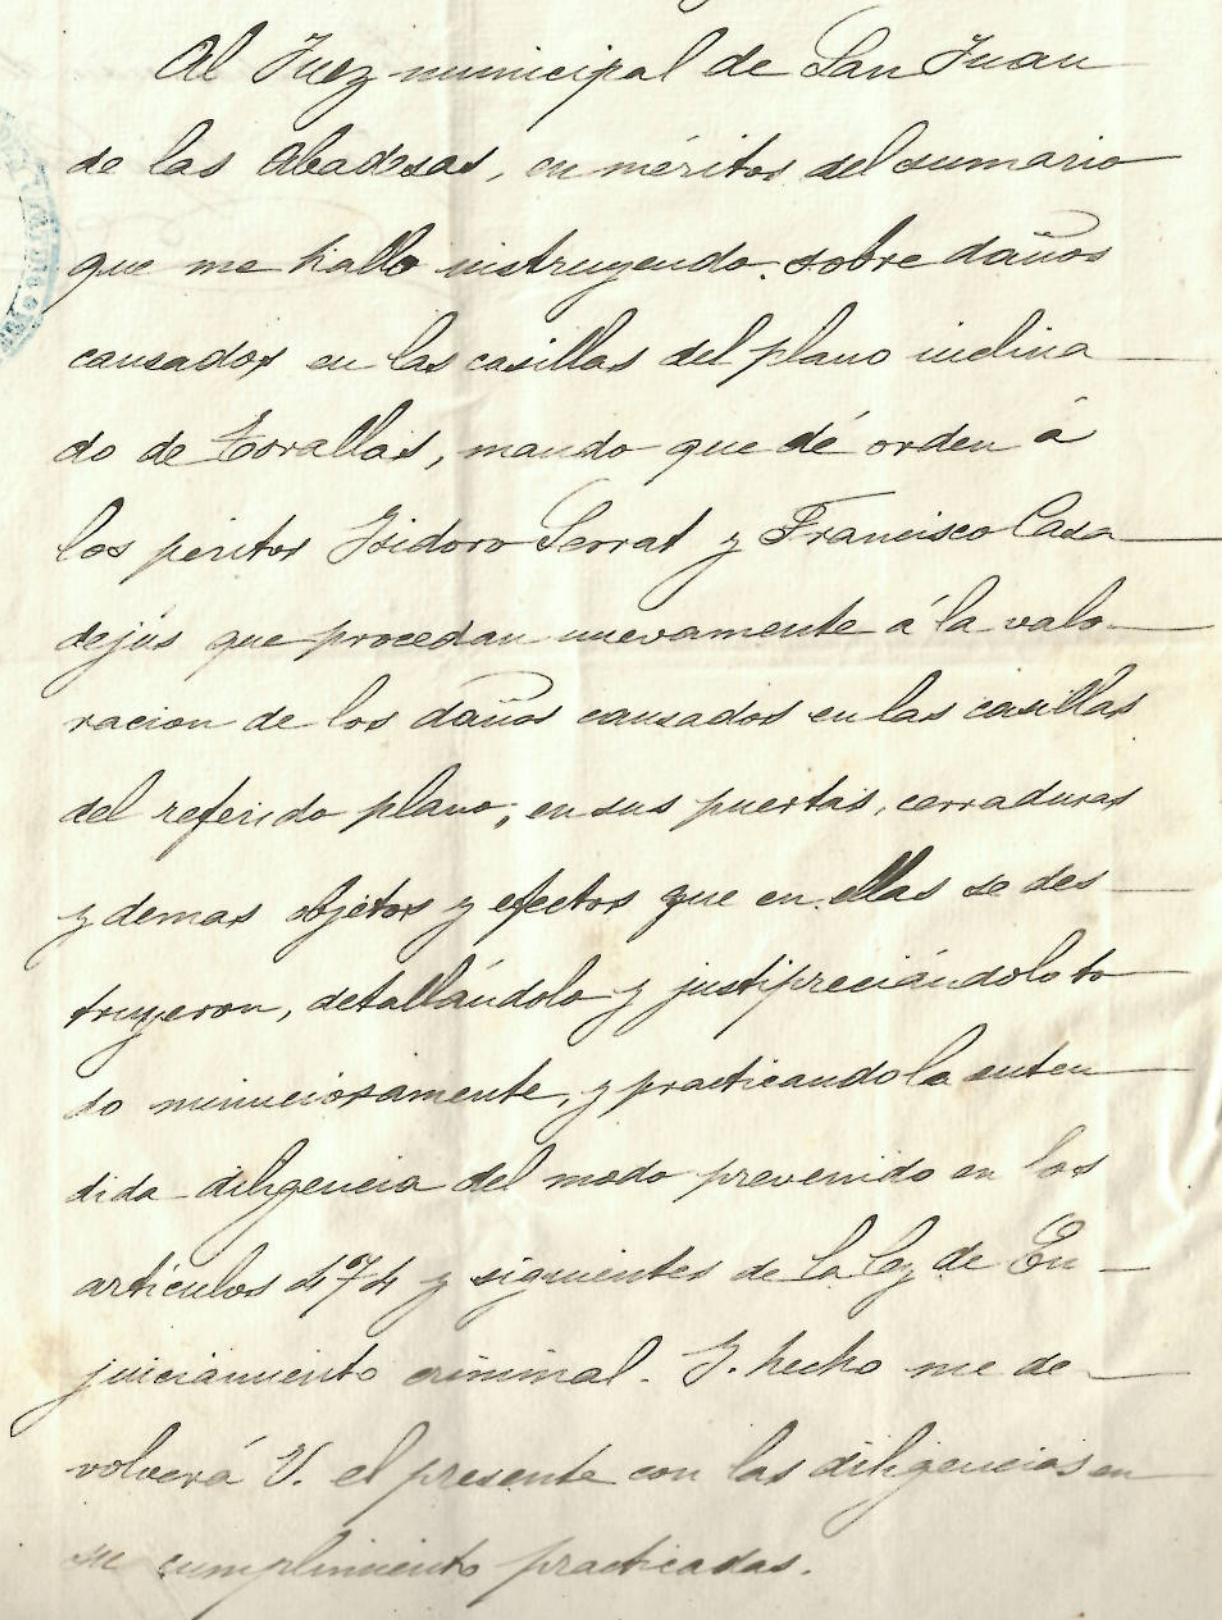 Al Juez municipal de San Juan
de las Abadesas, en méritos del sumario
que me hallo instruyendo sobre daños
causados en las casillas del plano inclina
do de Torallas, mando que dé orden á
los peritos Isidoro Serrat y Francisco Casa
dejús que procedan nuevamente á la valo
racion de los daños causados en las casillas
del referido plano, en sus puertas, cerraduras
y demas objetos y efectos que en ellas se des
truyeron, detallándolo y justipreciándolo to
do minuciosamente, y practicando la enten
dida diligencia del modo prevenido en los
articulos 474 y siguientes de la Ley de En
juiciamiento criminal. Y hecho me de
volverá V. el presente con las diligencias en
su cumplimiento practicadas.